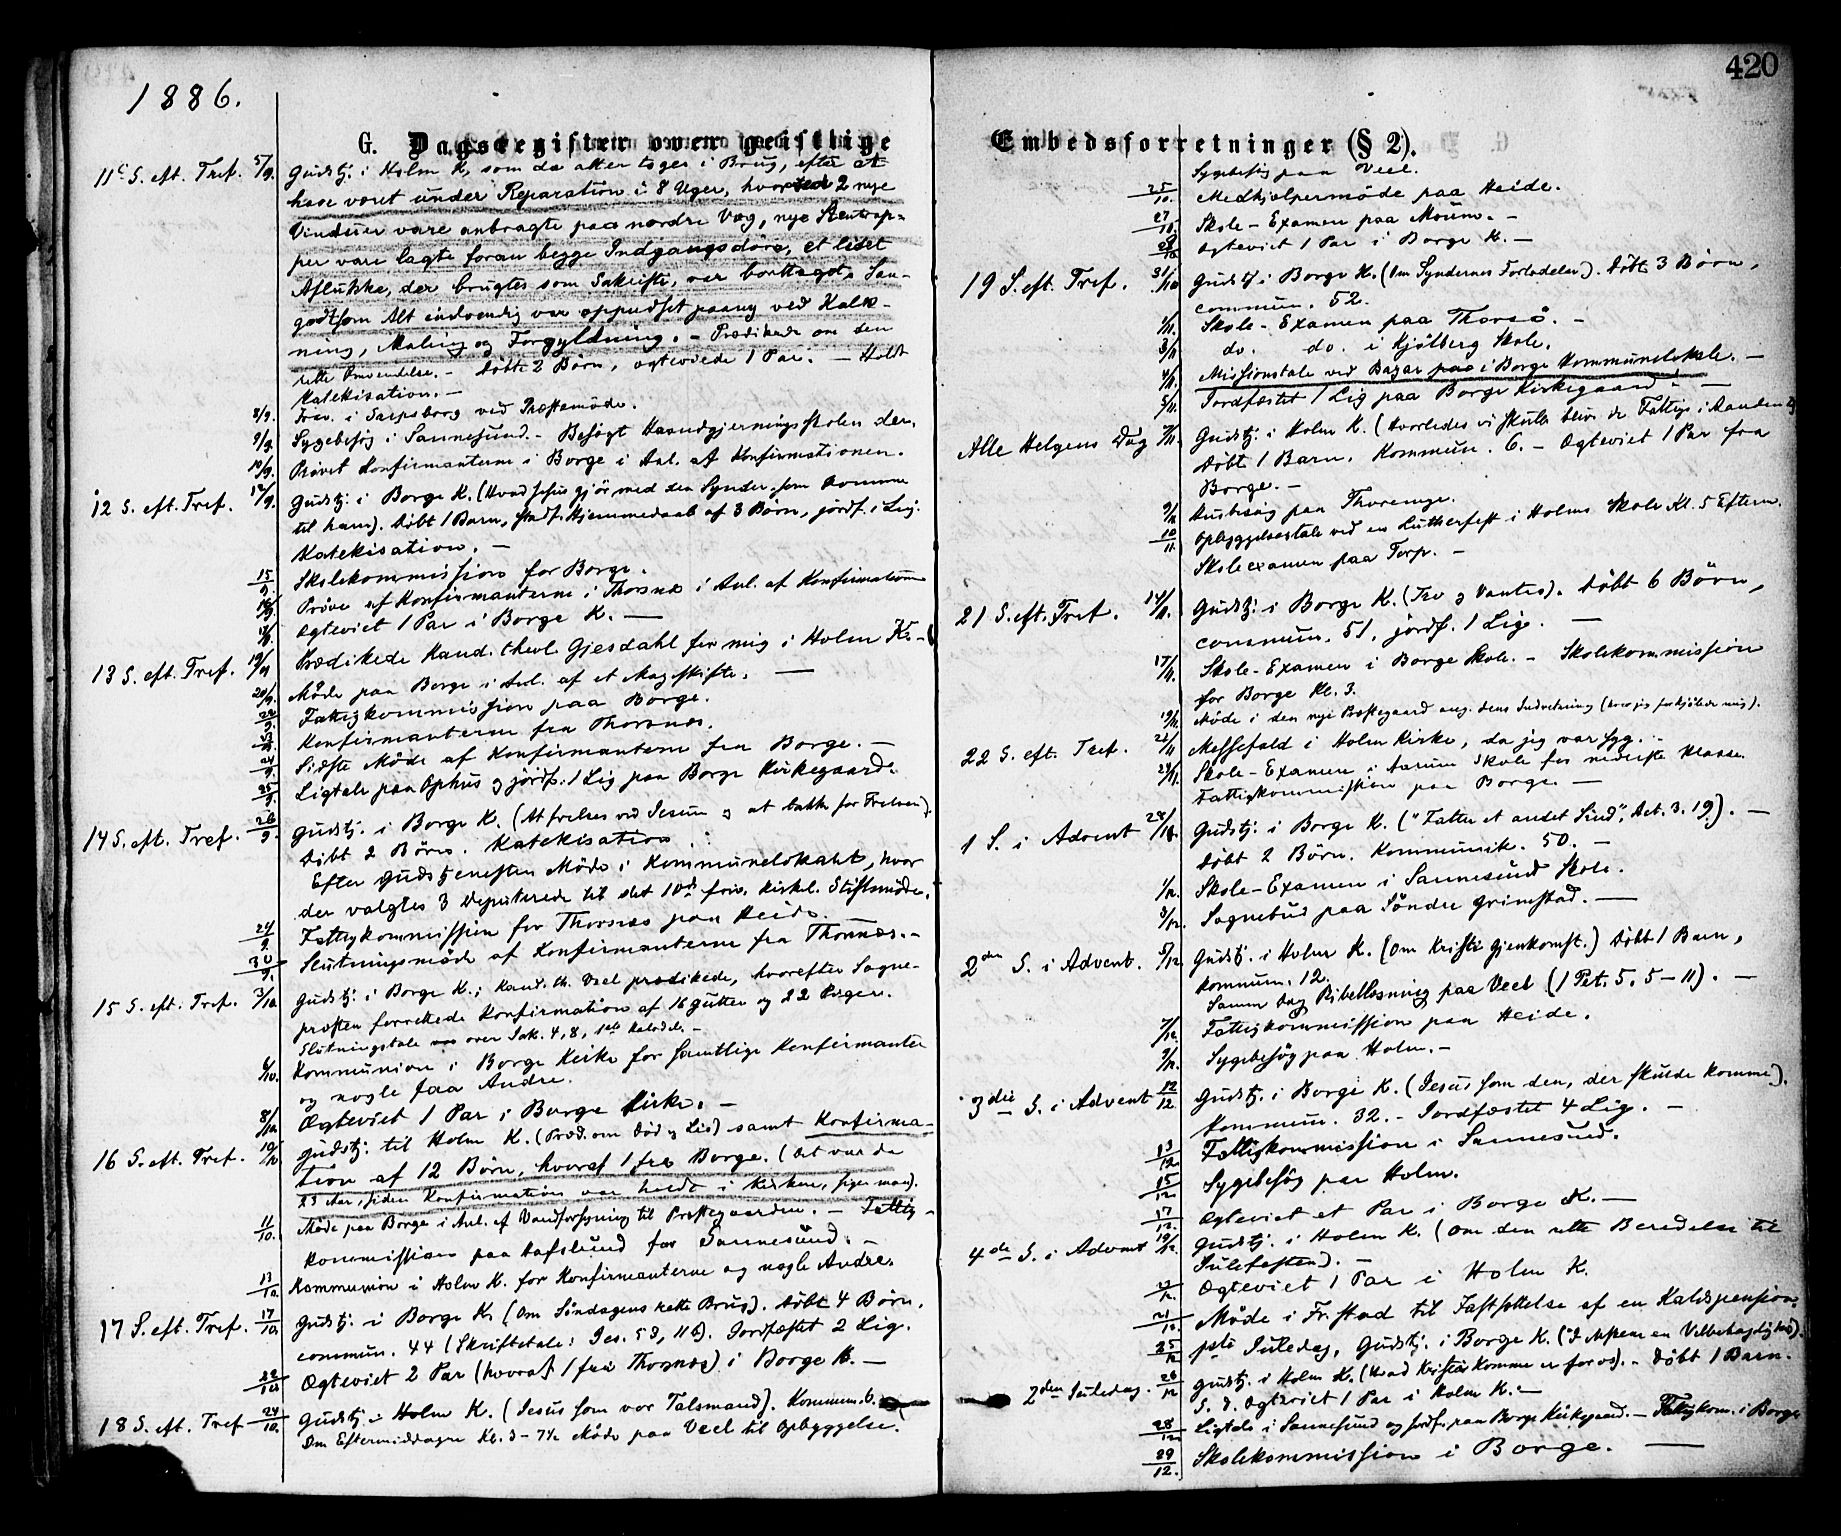 420
1886.
G. Dagsregister over geistlige Embedsforretninger (§ 2).
11e S. eft. Tref. 5/9. Gudstj. i Holm K, som da atter toges i Brug, efter at
have været under Reparation i 8 Uger, hvorved 2 nye
Vinduer vare anbragte paa nordre Væg, nye Stentrap=
per vare lagte foran begge Indgangsdöre, et lidet
Aflukke, der brugtes som Sakristi, var borttaget, saa-
godtsom Alt indvendig var oppudset paany ved Kalk-
ning, Maling og Forgyldning. - Prædikede om den
rette Omvendelse. - Döbte 2 Börn, ægteviede 1 Par. - Holdt
Katekisation. -
8/9. Frav. i Sarpsborg ved Præstemöde.
9/9. Sygebesög i Sannesund. - Besögt Haandgjerningsskolen der.
10/9. Prövet Konfirmanterne i Borge i Anl. af Konfirmationen.
12 S. eft. Tref. 12/9. Gudstj. i Borge K. (Hvad Jesus gjör med den Synder, som komme
til ham). Döbt 1 Barn, stadf. Hjemmedaab af 3 Börn, jordf. 1 Lig.
Katekisation. -
15/9. Skolekommission for Borge.
16/9. Pröve af Konfirmanterne i Thorsnæs i Anl. af Konfirmationen
18/9. Ægteviet 1 Par i Borge K. -
13 S. eft. Tref. 19/9 Prædikede Kand. theol. Gjesdahl for mig i Holm K. -
20/9. Möde paa Borge i Anl. af et Mageskifte. -
22/9. Fattigkommission paa Borge.
23/9. Konfirmanterne fra Thorsnæs.
24/9. Sidste Möde af Konfirmanterne fra Borge. -
25/9. Ligtale paa Ophus og jordf. 1 Lig paa Borge Kirkegaard.
14 S. eft. Tref. 26/9. Gudstj. i Borge K. (At frelses ved Jesum og at takke for Frelsen).
Döbt 2 Börn. Katekisation.
Efter Gudstjenesten Möde i Kommunelokalet, hvor
der valgtes 3 Deputerede til det 10de friv. kirkel. Stiftsmöde.
29/9. Fattigkommission for Thorsnæs paa Heide.
30/9. Slutningsmöde af Konfirmanterne fra Thorsnæs. -
15 S. eft. Tref. 3/10. Gudstj. i Borge K.; Kand. th. Veel prædikede, hvorefter Sogne-
præsten forrettede Konfirmation af 16 Gutter og 22 Piger.
Slutningstale var over Jak. 4, 8, 1ste Halvdel. -
6/10. Kommunion i Borge Kirke for samtlige Konfirmanter
og nogle faa Andre.
8/10. Ægteviet 1 Par i Borge Kirke. -
16 S. eft. Tref. 10/10 Gudstj. til Holm K. (Præd. om Död og Liv) samt Konfirma-
tion af 12 Börn, hvoraf 1 fra Borge. (Det var da
23 Aar, siden Konfirmation var holdt i Kirken, siger man).
11/10. Möde paa Borge i Anl. af Vandforsyning til Præstegaarden. - Fattig-
kommission paa Hafslund for Sannesund. -
13/10. Kommunion i Holm K. for Konfirmanterne og nogle Andre.
17 S. eft. Tref. 17/10. Gudstj. i Borge K. (Om Söndagens rette Brug). Döbt 4 Börn.
commun. 44 (Skriftetale: Jes. 53, 11b). Jordfæstet 2 Lig.
22/10. Ægteviet 2 Par (hvoraf 1 fra Thorsnæs) i Borge K. -
18 S. eft. Tref 24/10. Gudstj. i Holm K. (Jesus som vor Talsmand). Kommun. 6.
Om Eftermiddagen Kl. 3 - 7½ Möde paa Veel til Opbyggelse.
Sygebesög paa Veel.
25/10. Medhjælpermöde paa Heide.
27/10. Skole-Examen paa Moum. -
Ægteviet 1 Par i Borge K. -
19 S. eft. Tref. 31/10 Gudstj. i Borge K. (Om Syndernes Forladelse). Döbt 3 Börn,
commun. 52.
1/11. Skole-Examen paa Thorsö. -
3/11 do. do. i Kjölberg Skole.
4/11. Missionstale ved Bazar paa i Borge Kommunelokale. -
5/11. Jordfæstet 1 Lig paa Borge Kirkegaard. -
Alle Helgens Dag 7/11. Gudstj. i Holm K. (Hvorledes vi skulle blive de Fattige i Aanden)
Döbt 1 Barn. Kommun. 6. - Ægteviet 1 Par fra
Borge. -
9/11 Husbesög paa Thorenge.
10/11. Opbyggelsestale ved en Lutherfest i Holms Skole Kl. 5 Efterm.
Skoleexamen paa Torp. -
21 S. eft. Tref. 14/11. Gudstj. i Borge K. (Tro og Vantro). Döbt 6 Börn,
commun. 51, jordf. 1 Lig. -
17/11. Skole-Examen i Borge Skole. - Skolekommission
for Borge Kl. 3.
19/11. Möde i den nye Præstegaard ang. dens Indretning
22 S. eft. Tref. 21/11 Messefald i Holm Kirke, da jeg var syg. -
24/11. Skole-Examen i Aarum Skole for nederste Klasse.
Fattigkommission paa Borge. -
1 S. i Advent 28/11. Gudstj. i Borge K. ("Fatter et andet Sind", Act. 3. 19.). -
Döbt 2 Börn. Kommunik. 50. -
1/12. Skole-Examen i Sannesund Skole.
3/12. Sognebud paa Söndre Grimstad. -
2den S. i Advent. 5/12 Gudstj. i Holm K. (Om Kristi Gjenkomst.) Döbt 1 Barn,
kommun. 12.
Samme Dag Bibellæsning paa Veel (1 Pet. 5, 5-11). -
7/12. Fattigkommission paa Heide.
9/12. Sygebesög paa Holm. -
3die S. i Advent 12/12. Gudstj. i Borge K. (Jesus som den, der skulde komme).
Kommun. 32. - Jordfæstet 4 Lig. -
13/12. Fattigkommission i Sannesund.
15/12. Sygebesög paa Holm.
17/12. Ægteviet et Par i Borge K. -
4de S. i Advent 19/12. Gudstj. i Holm K. (Om den rette Beredelse til
Julefesten). -
Ægteviet 1 Par i Holm K.
21/12. Möde i Fr.stad til Fastsættelse af en Kaldspension.
25/12 1ste Juledag, Gudstj. i Borge K. ("I Mskene en Velbehagelighed).
2den Juledag. 26/12 Gudstj. i Holm K. (Hvad Kristi Komme er for os). - Döbt 1 Barn.
S. D. Ægteviet 1 Par i Holm K. -
28/12. Ligtale i Sannesund og jordf. paa Borge Kirkegaard. - Fattigkom. i Borge
29/12. Skolekommission i Borge. -